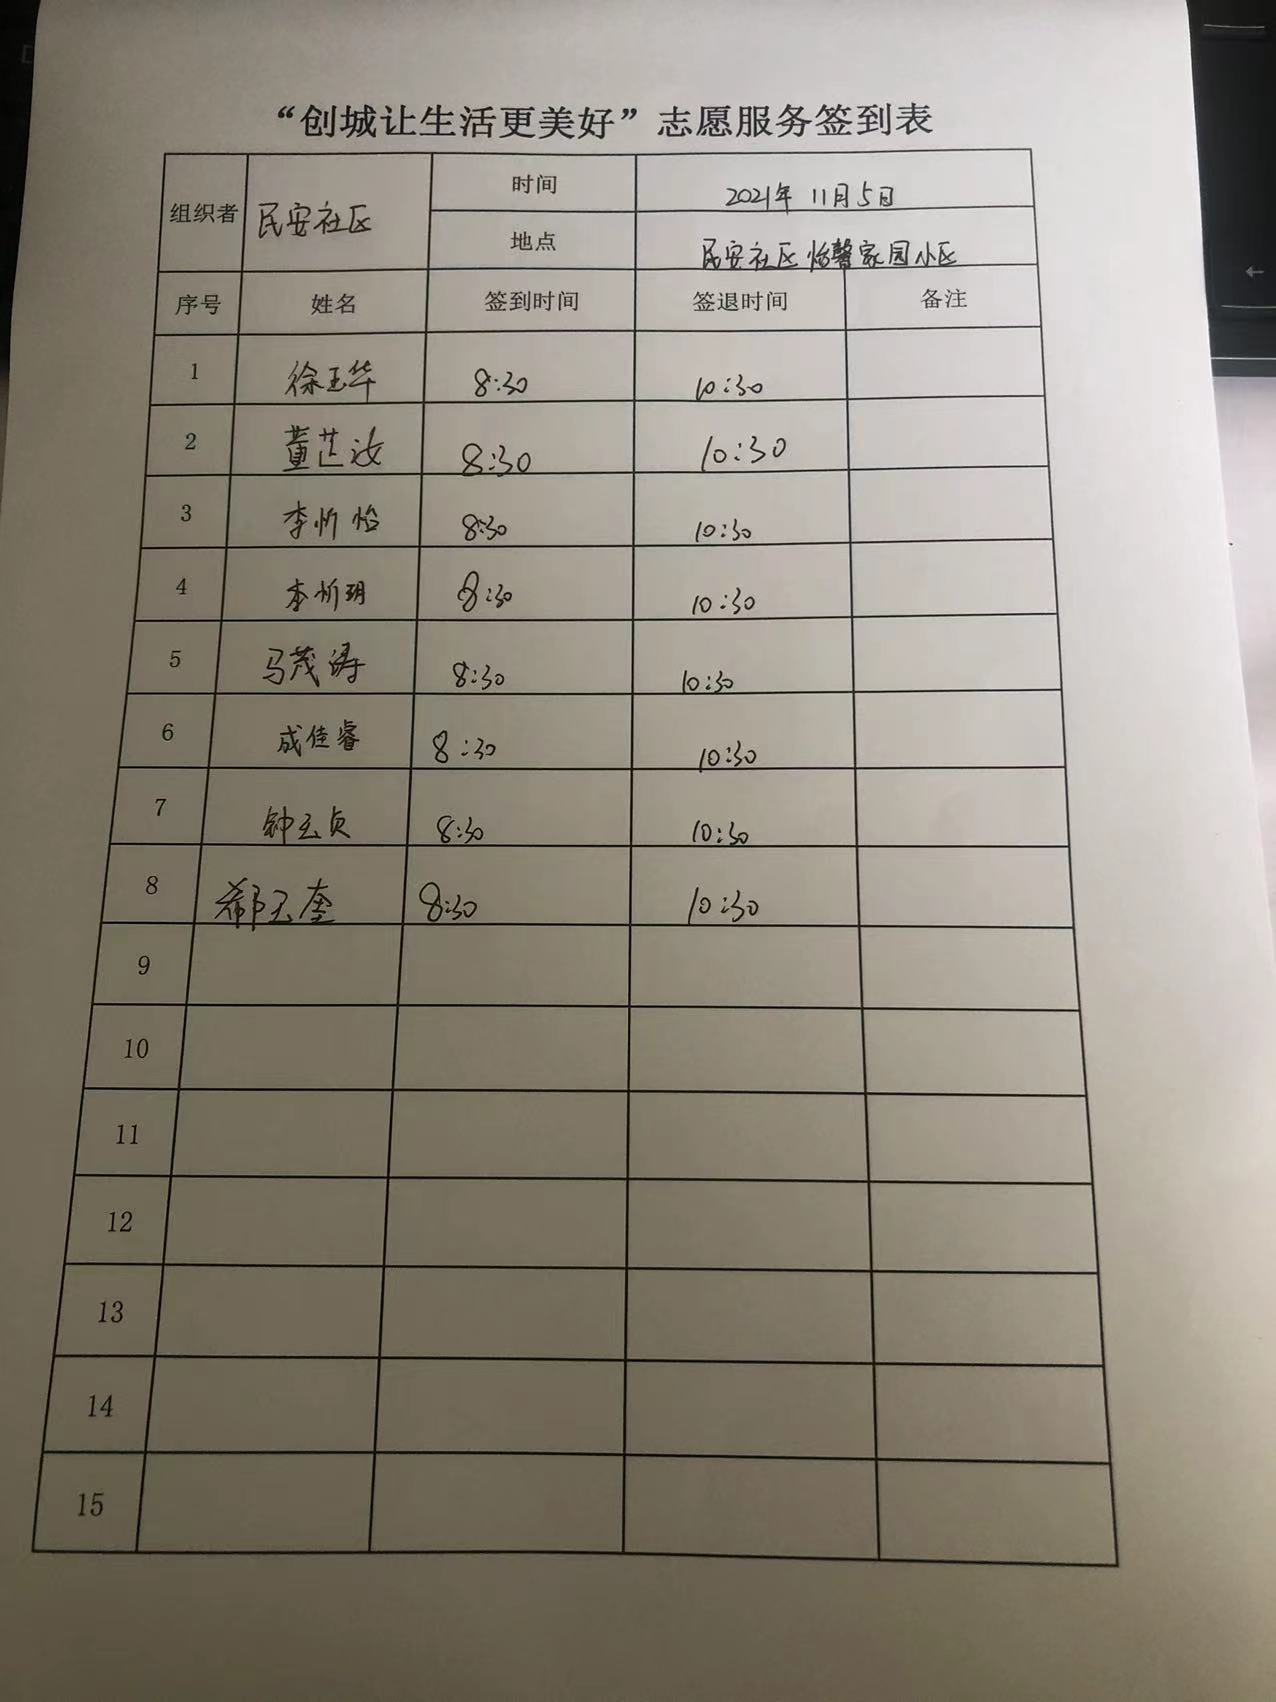 “创城让生活更美好”志愿服务签到表
组织者 民安社区 时间 2021年 11月5日
地点 民安社区怡馨家园小区
序号 姓名 签到时间 签退时间 备注
1 徐玉华 8:30 10:30
2 董芷汝 8:30 10:30
3 李忻怡 8:30 10:30
4 李忻玥 8:30 10:30
5 马茂涛 8:30 10:30
6 成佳睿 8:30 10:30
7 钟玉贞 8:30 10:30
8 郗玉奎 8:30 10:30
9
10
11
12
13
14
15